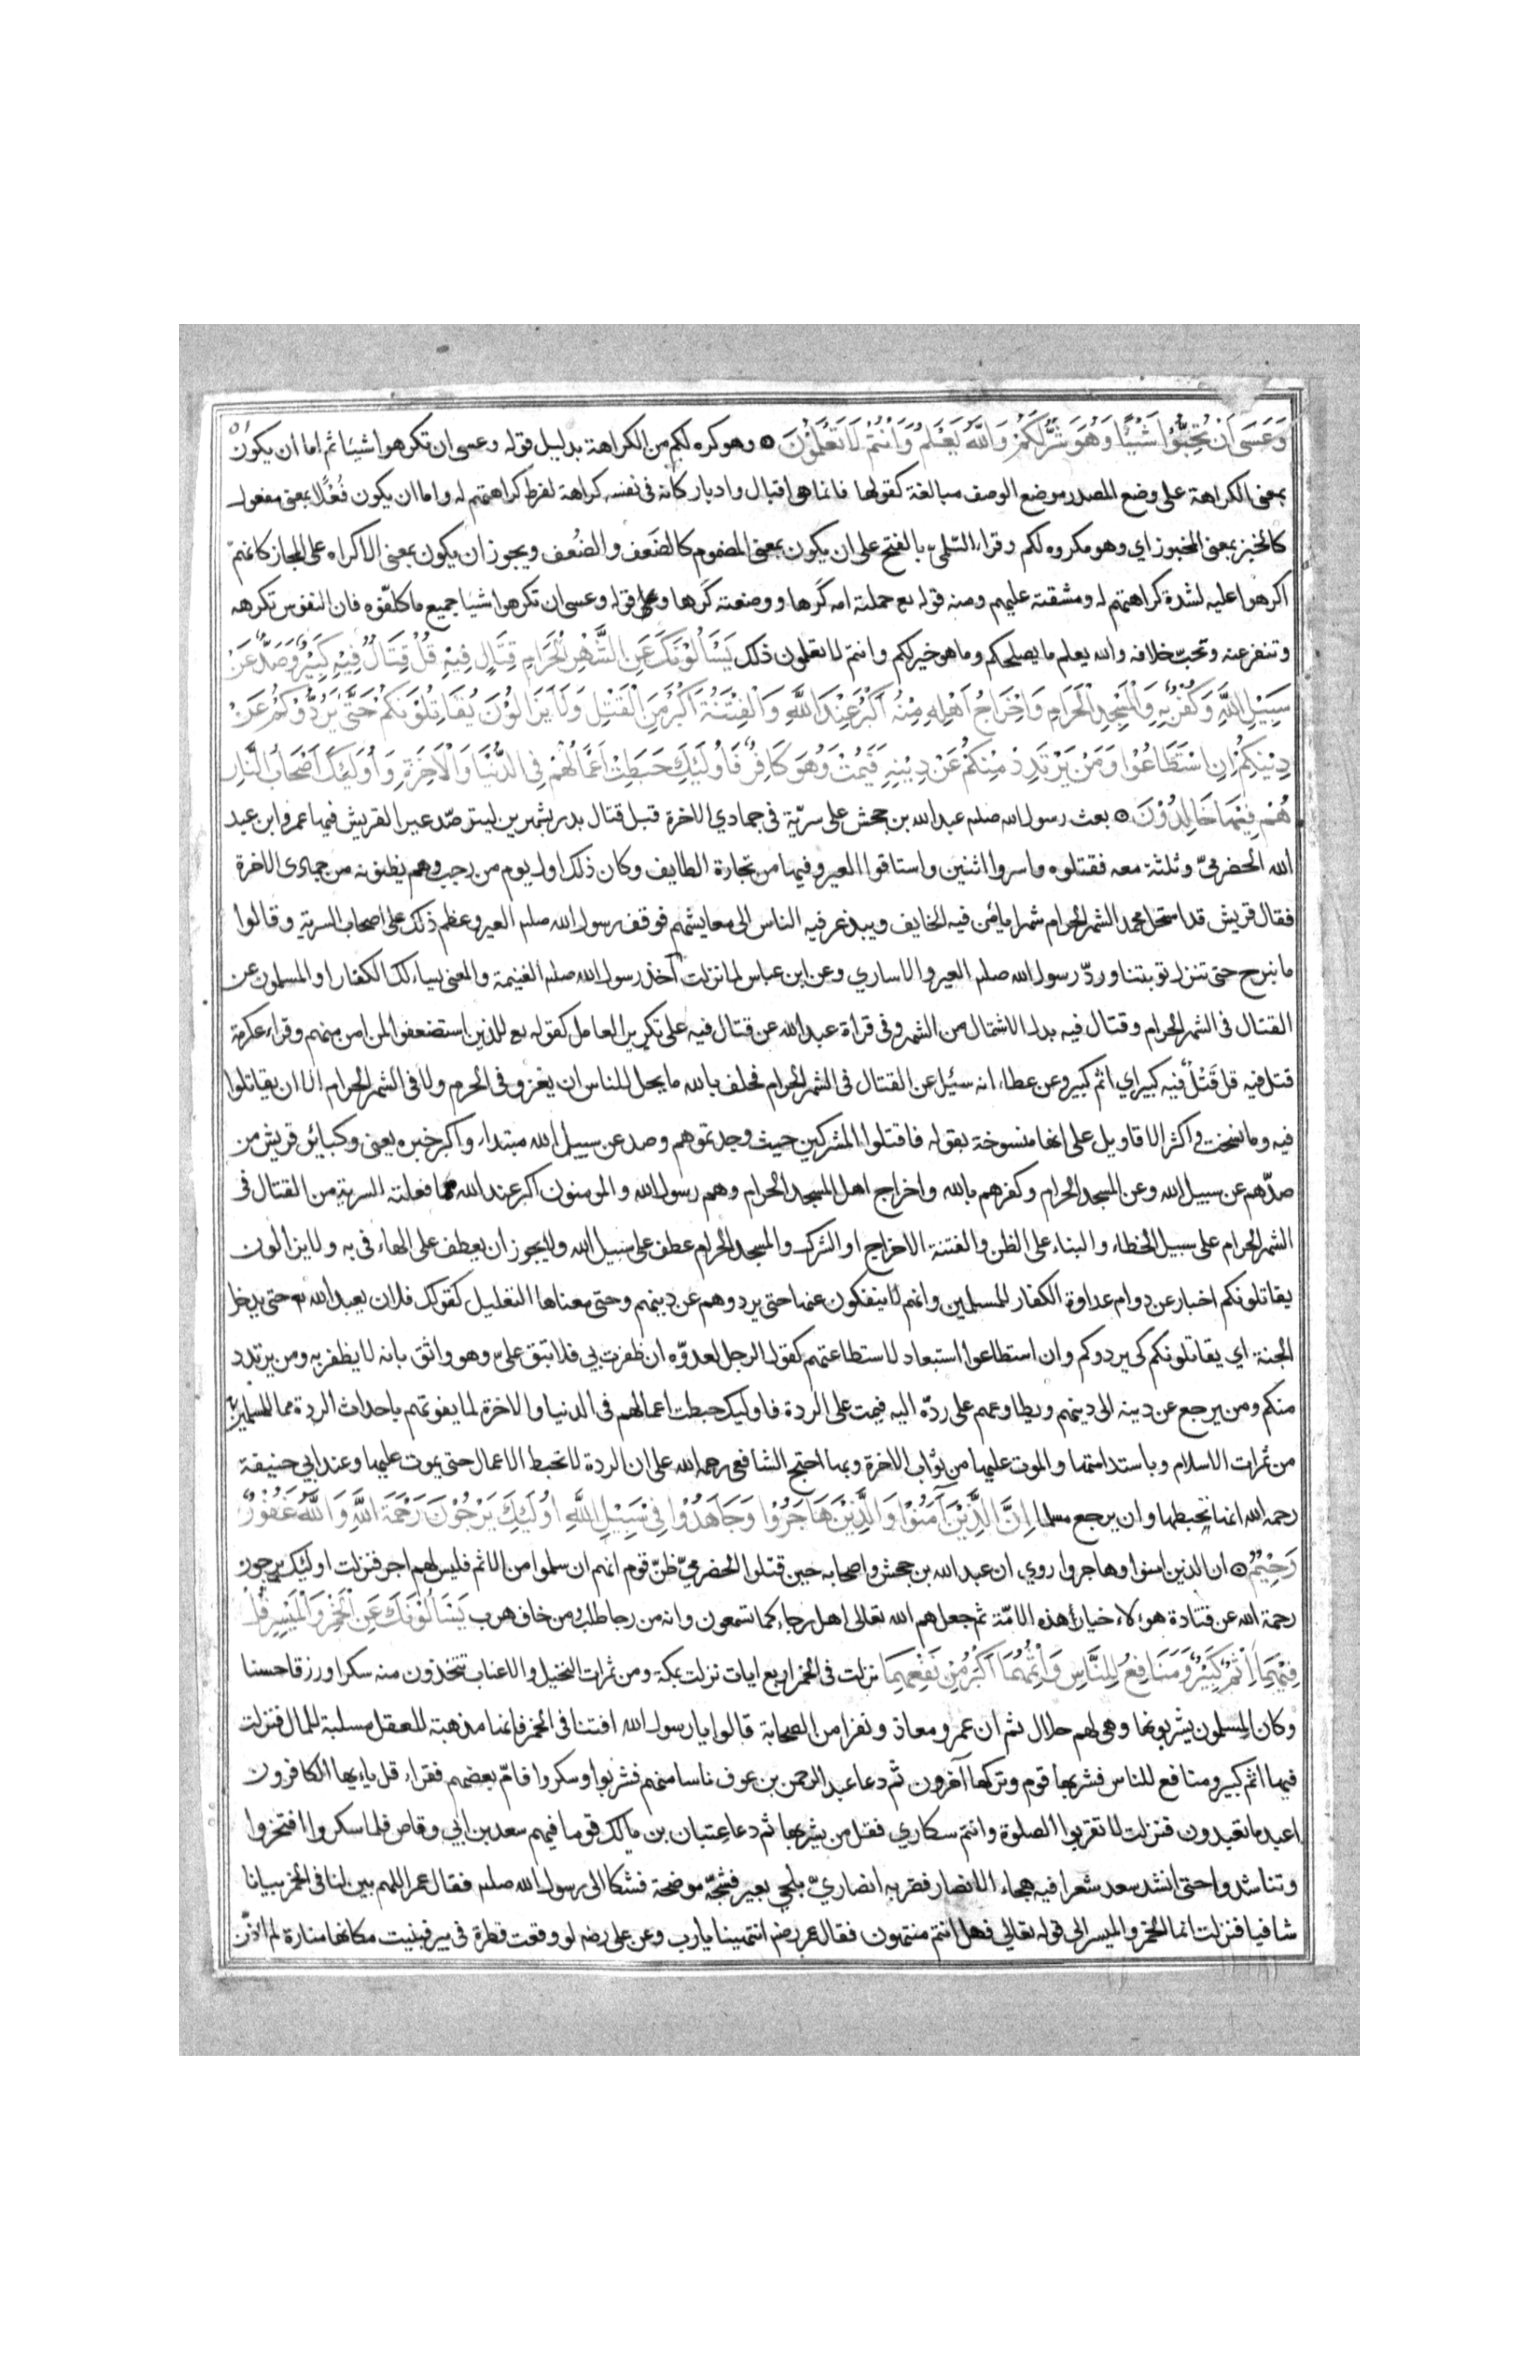 ٥١
وَعَسَى اَنْ تُحِبُّوْا شَيْئًا وَهُوَ شَرٌّ لَكُمْ وَاللّٰهُ يَعْلَمُ وَاَنْتُمْ لَا تَعْلَمُوْنَ ۝ وهو كره لكم من الكراهة بدليل قوله وعسى ان تكرهوا شيئا ثم اما ان يكون
بمعنى الكراهة على وضع المصدر موضع الوصف مبالغة كقولها فانما هى اقبال وادبار كانه فى نفسه كراهة لفرط كراهتهم له واما ان يكون فُعْلًا بمعنى مفعول
كالخبز بمعنى المخبوز اي وهو مكروه لكم وقراء السّلمي بالفتح على ان يكون بمعنى المضموم كالضَعف والضُعف ويجوز ان يكون بمعنى الاكراه على المجاز كانهم
اكرهوا عليه لشدة كراهتهم له ومشقته عليهم ومنه قوله تع حملته امه كُرها ووضعته كُرها وعلى قوله وعسى ان تكرهوا شيئا جميع ما كلّفوه فان النفوس تكرهه
وتنفر عنه وتحب خلافه والله يعلم ما يصلحكم وما هو خير لكم وانتم لا تعلمون ذلك يَسْأَلُوْنَكَ عَنِ الشَّهْرِ الْحَرَامِ قِتَالٍ فِيْهِ قُلْ قِتَالٌ فِيْهِ كَبِيْرٌ وَصَدٌّ عَنْ
سَبِيْلِ اللّٰهِ وَكُفْرٌ بِهِ وَالْمَسْجِدِ الْحَرَامِ وَاِخْرَاجُ اَهْلِهِ مِنْهُ اَكْبَرُ عِنْدَ اللّٰهِ وَالْفِتْنَةُ اَكْبَرُ مِنَ الْقَتْلِ وَلَا يَزَالُوْنَ يُقَاتِلُوْنَكُمْ حَتّٰى يَرُدُّوْكُمْ عَنْ
دِيْنِكُمْ اِنِ اسْتَطَاعُوْا وَمَنْ يَرْتَدِدْ مِنْكُمْ عَنْ دِيْنِهِ فَيَمُتْ وَهُوَ كَافِرٌ فَاُولٰئِكَ حَبِطَتْ اَعْمَالُهُمْ فِى الدُّنْيَا وَالْاٰخِرَةِ وَاُولٰئِكَ اَصْحَابُ النَّارِ
هُمْ فِيْهَا خَالِدُوْنَ ۝ بعث رسول الله صلم عبد الله بن جحش على سريّة فى جمادي الاخرة قبل قتال بدر بشهرين ليترصّد عيرا لقريش فيها عمرو ابن عبد
الله الحضرميّ وثلثة معه فقتلوه واسروا اثنين واستاقوا العير وفيها من تجارة الطايف وكان ذلك اول يوم من رجب وهم يظنونه من جمادى الاخرة
فقال قريش قد استحل محمد الشهر الحرام شهرا يامن فيه الخايف ويبذعر فيه الناس الى معايشهم فوقف رسول الله صلم العير وعظم ذلك على اصحاب السرية وقالوا
ما نبرح حتى تنزل توبتنا وردّ رسول الله صلم العير والاساري وعن ابن عباس لما نزلت آخذ رسول الله صلم الغنيمة والمعنى يساءلك الكفار او المسلمون عن
القتال فى الشهر الحرام وقتال فيه بدل الاشتمال من الشهر وفى قراة عبد الله عن قتال فيه على تكرير العامل كقوله تع للذين استضعفوا لمن امن منهم وقراء عكرمة
قتل فيه قل قَتْلٌ فيه كبير اي اثم كبير وعن عطاء انه سئل عن القتال فى الشهر الحرام فحلف بالله ما يحل للناس ان يغزو فى الحرم ولا فى الشهر الحرام الا ان يقاتلوا
فيه وما نسخت واكثر الاقاويل على انها منسوخة بقوله فاقتلوا المشركين حيث وجدتموهم وصد عن سبيل الله مبتداء واكبر خبره يعنى وكبائر قريش من
صدّهم عن سبيل الله وعن المسجد الحرام وكفرهم بالله واخراج اهل المسجد الحرام وهم رسول الله والمومنون اكبر عند الله مما فعلته السرية من القتال فى
الشهر الحرام على سبيل الخطاء والبناء على الظن والفتنة الاخراج او الشرك والمسجد الحرام عطف على سبيل الله ولا يجوز ان يعطف على الهاء فى به ولا يزالون
يقاتلونكم اخبار عن دوام عداوة الكفار للمسلمين وانهم لا ينفكون عنها حتى يردوهم عن دينهم وحتى معناها التعليل كقولك فلان يعبد الله تع حتى يدخل
الجنة اي يقاتلونكم كى يردوكم وان استطاعوا استبعاد لاستطاعتهم كقول الرجل لعدوّه ان ظفرت بي فلا تبق علىّ وهو واثق بانه لا يظفر به ومن يرتدد
منكم ومن يرجع عن دينه الى دينهم ويطاوعهم على ردّه اليه فيمت على الردة فاوليك حبطت اعمالهم فى الدنيا والاخرة لما يفوتهم باحداث الردة مما للمسلمين
من ثمرات الاسلام وباستدامتها والموت عليها من ثواب الاخرة وبها احتج الشافعى رحمه الله على ان الردة لا تحبط الاعمال حتى يموت عليها وعند ابي حنيفة
رحمه الله انها تحبطها وان يرجع مسلما اِنَّ الَّذِيْنَ آمَنُوْا وَالَّذِيْنَ هَاجَرُوْا وَجَاهَدُوْا فِىْ سَبِيْلِ اللّٰهِ اُولٰئِكَ يَرْجُوْنَ رَحْمَةَ اللّٰهِ وَاللّٰهُ غَفُوْرٌ
رَحِيْمٌ ۝ ان الذين امنوا وهاجروا روي ان عبد الله بن جحش واصحابه حين قتلوا الحضرميّ ظنّ قوم انهم ان سلموا من الاثم فليس لهم اجر فنزلت اوليك يرجون
رحمة الله عن قتادة هولاء خيار هذه الامّة ثم جعلهم الله تعالى اهل رجاء كما تسمعون وانه من رجا طلب ومن خاف هرب يَسْأَلُوْنَكَ عَنِ الْخَمْرِ وَالْمَيْسِرِ قُلْ
فِيْهِمَا اِثْمٌ كَبِيْرٌ وَمَنَافِعُ لِلنَّاسِ وَاِثْمُهُمَا اَكْبَرُ مِنْ نَفْعِهِمَا نزلت فى الخمر اربع ايات نزلت بمكة ومن ثمرات النخيل والاعناب تتخذون منه سكرا ورزقا حسنا
وكان المسلمون يشربونها وهى لهم حلال ثم ان عمر ومعاذ ونفرا من الصحابة قالوا يا رسول الله افتنا فى الخمر فانها مذهبة للعقل مسلبة للمال فنزلت
فيهما اثم كبير ومنافع للناس فشربها قوم وتركها آخرون ثم دعا عبد الرحمن بن عوف ناسا منهم فشربوا وسكروا فامّ بعضهم فقراء قل يايها الكافرون
اعبد ما تعبدون فنزلت لا تقربوا الصلوة وانتم سكاري فقل من يشربها ثم دعا عتبان بن مالك قوما فيهم سعد بن ابي وقاص فلما سكروا افتخروا
وتناشدوا حتى انشد سعد شعرا فيه هجاء الانصار فضربه انصاريّ بلحي بعير فشجّه موضحة فشكا الى رسول الله صلم فقال عمر اللهم بين لنا فى الخمر بيانا
شافيا فنزلت انما الخمر والميسر الى قوله تعالى فهل انتم منتهون فقال عمر رضه انتهينا يا رب وعن على رضه لو وقعت قطرة فى بير فبنيت مكانها منارة لم اؤذّن